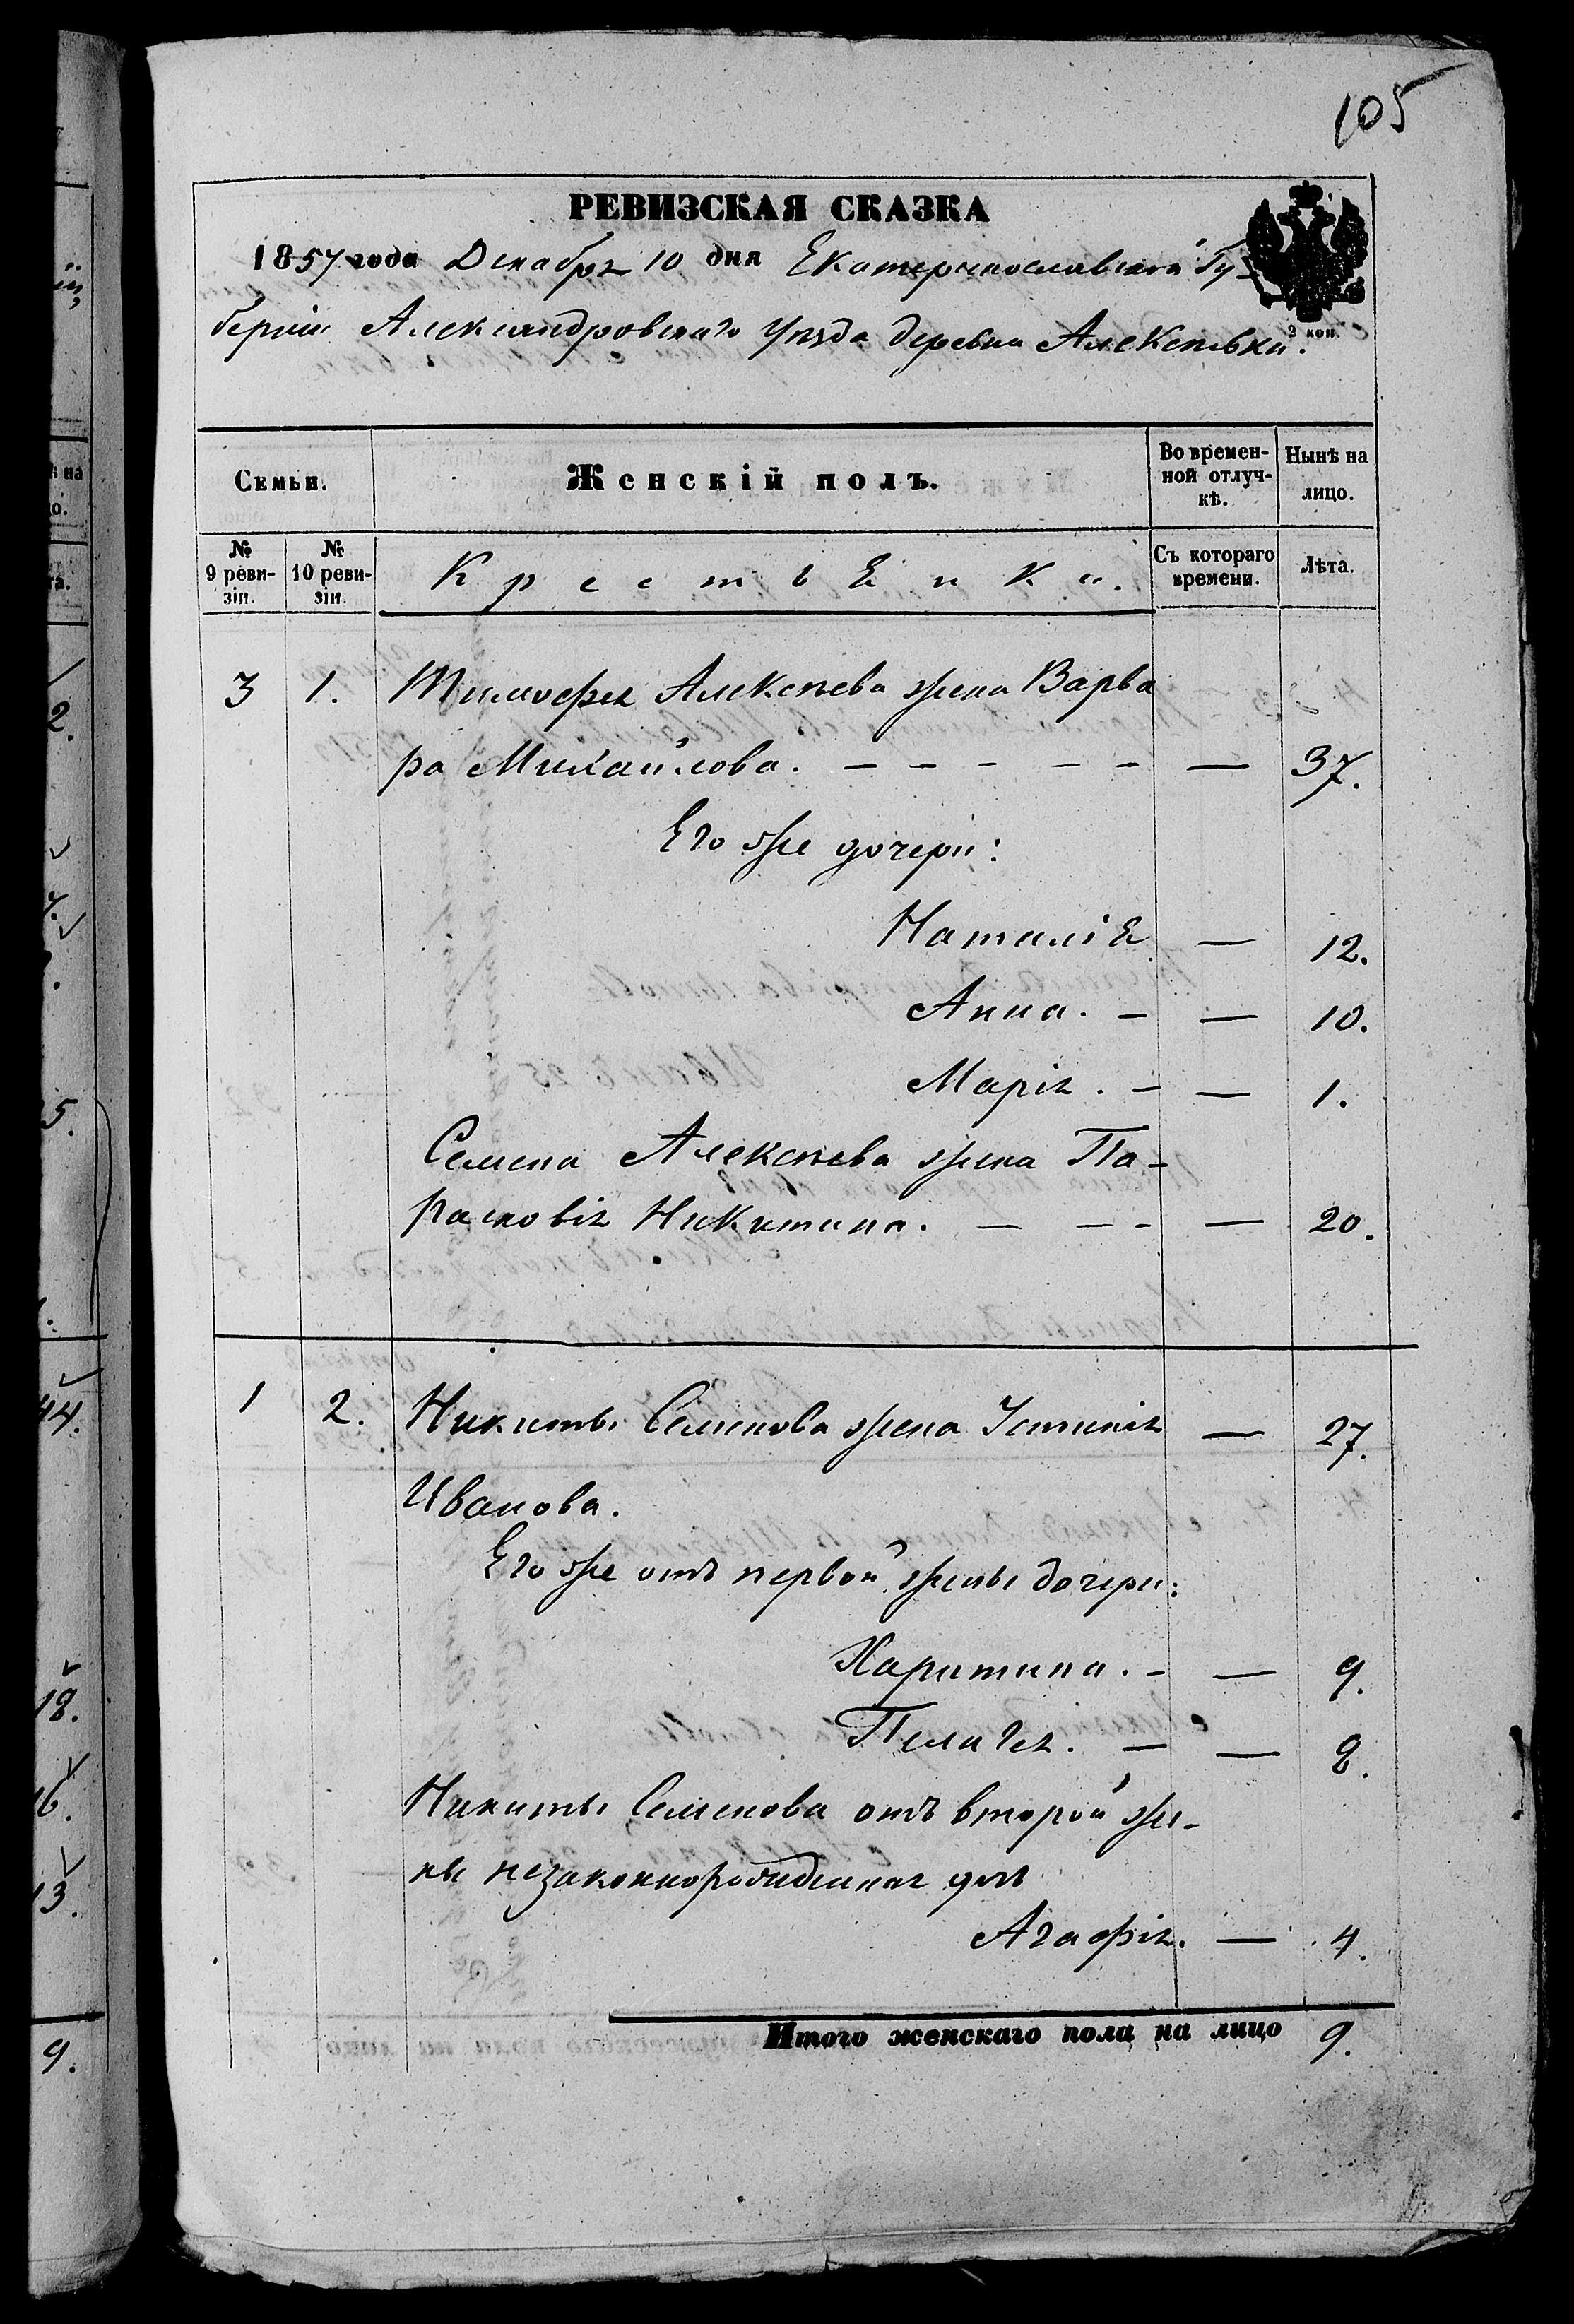 105
РЕВИЗСКАЯ СКАЗКА
1857 года Декабря 10 дня Екатеринославской Гу-
берніи Александровскаго Уѣзда деревни Алексѣевки.
2 коп.
Семьи.
Женскій полъ.
Во времен-
ной отлуч-
кѣ.
Нынѣ на
лицо.
№
9 реви-
зіи.
№
10 реви-
зіи.
Крестьянки.
Съ котораго
времени.
Лѣта.
3 1. Тимофея Алексѣева жена Варва
ра Михайлова. — — — — — — 37.
Его же дочери:
Наталія — 12.
Анна. — — 10.
Марія. — — 1.
Семена Алексѣева жена Па-
расковія Никитина. — — - — 20.
1 2. Никиты Семенова жена Устинія — 27.
Иванова.
Его же отъ первой жены дочери:
Харитина. - — 9.
Пелагея. — — 8.
Никиты Семенова отъ второй же-
ны незаконнорожденная дочь
Агафія. — 4.
Итого женскаго пола на лицо 9.